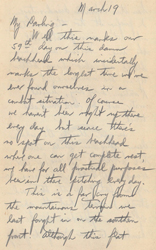 March 19
My Darling -
Well this marks our
59th day on this damn
beachhead which incidentally
marks the longest time we've
ever found ourselves in a
combat situation. Of course
we haven't been right up there
every day but since there's
no spot on this beachhead
where one can get complete rest,
we have for all practical purposes
been in this fighting every day.
This is a far cry from
the maintenance time we
last fought in on the southern
front although the first